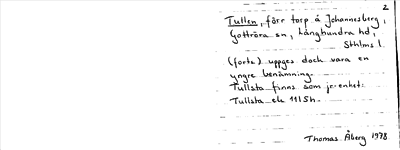 2
Tullen, förr torp å Johannesberg,
Gottröra sn, Långhundra hd,
Sthlms l.
(forts) uppges dock vara en
yngre benämning.
Tullsta finns som jr-enhet:
Tullsta ek 11 I 5 h.
Thomas Åberg 1978